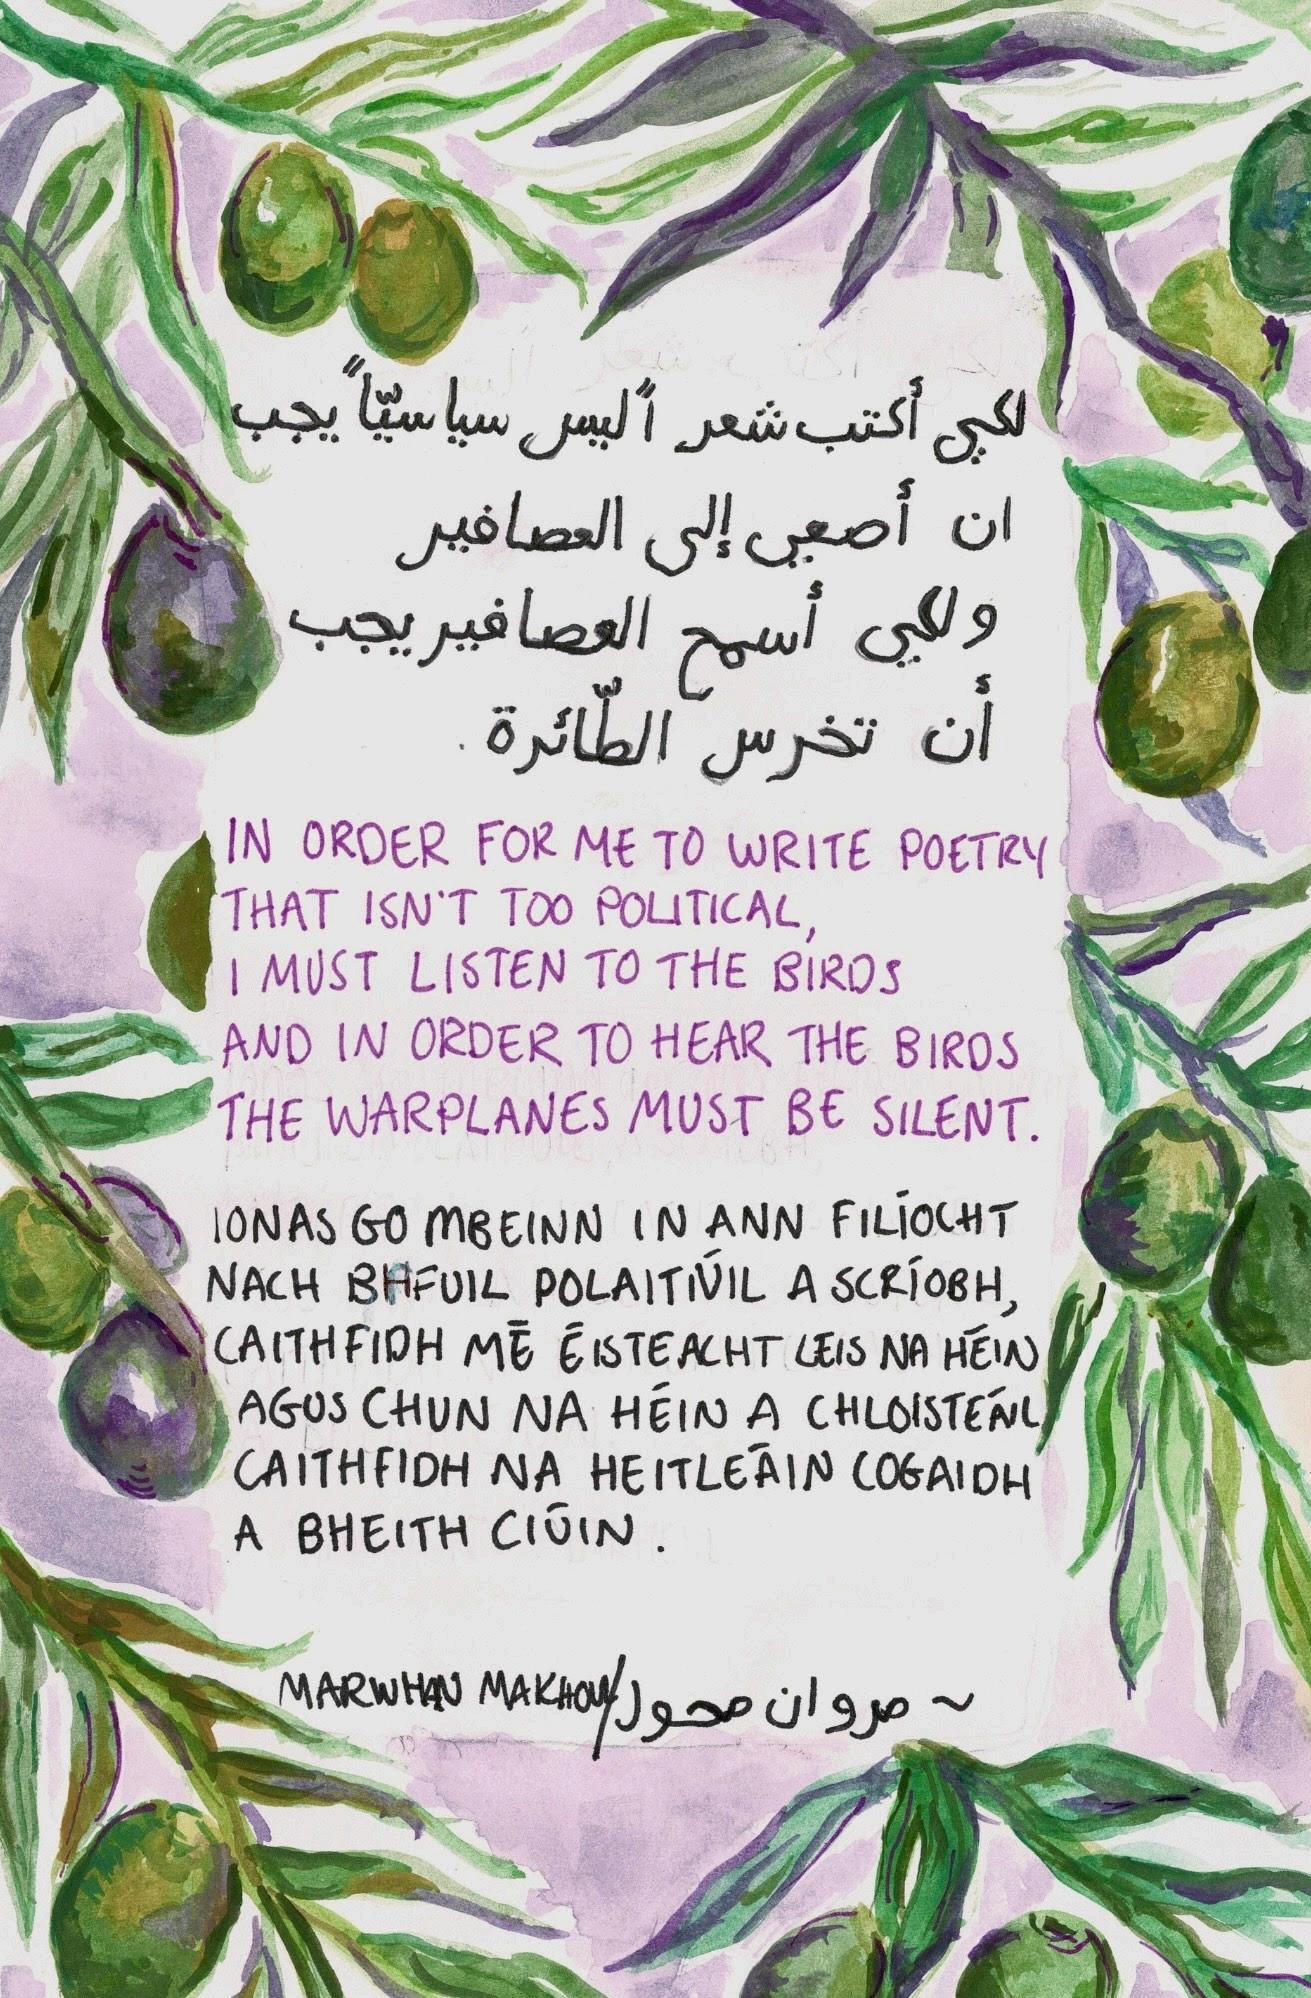 لكي أكتب شعر اً ليس سياسيّاً يجب
ان أصعي إلى العصافير
ولكي أسمح العصافير يجب
أن تخرس الطّائرة.
IN ORDER FOR ME TO WRITE POETRY
THAT ISN'T TOO POLITICAL,
I MUST LISTEN TO THE BIRDS
AND IN ORDER TO HEAR THE BIRDS
THE WARPLANES MUST BE SILENT.
IONAS GO MBEINN IN ANN FILÍOCHT
NACH BHFUIL POLAITIÚIL A SCRÍOBH,
CAITHFIDH MÉ ÉISTEACHT LEIS NA HÉIN
AGUS CHUN NA HÉIN A CHLOISTEÁIL
CAITHFIDH NA HEITLEÁIN COGAIDH
A BHEITH CIÚIN.
MARWHAN MAKHOUL/مروان محور ~